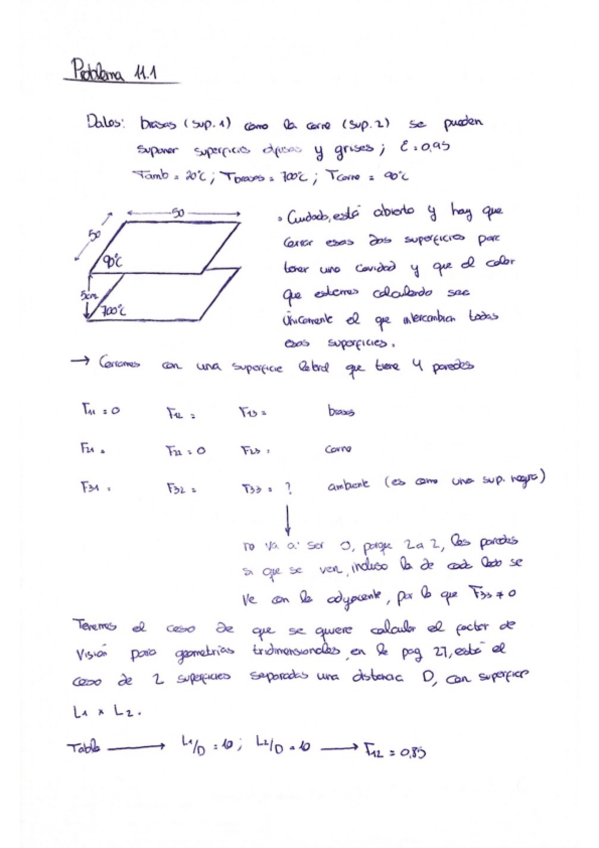 Problema 11.1
Datos: brasas (sup. 1) como la carne (sup. 2) se pueden
suponer superficies opacas y grises; ε = 0,95
Tamb = 20°C; Tbrasas = 700°C; Tcarne = 90°C
50
50
90°C
5cm
700°C
• Cuidado, está abierto y hay que
cerrar esas dos superficies para
tener una cavidad y que el calor
que estemos calculando sea
únicamente el que intercambian todas
esas superficies.
→ Cerramos con una superficie lateral que tiene 4 paredes
F11 = 0 F12 = F13 = brasas
F21 = F22 = 0 F23 = carne
F31 = F32 = F33 = ? ambiente (es como una sup. negra)
no va a ser 0, porque 2 a 2, las paredes
si que se ven, incluso la de cada lado se
ve con la adyacente, por lo que F33 ≠ 0
Tenemos el caso de que se quiere calcular el factor de
visión para geometrías tridimensionales, en la pag 27, está el
caso de 2 superficies separadas una distancia D, con superficie
L1 x L2.
Tabla → L1/D = 10; L2/D = 10 → F12 = 0,85